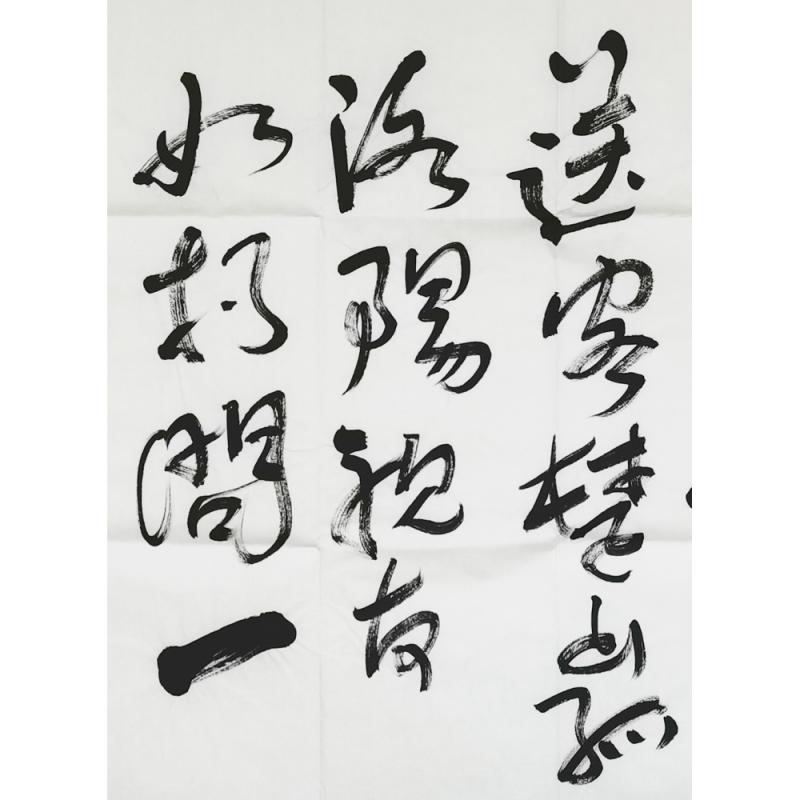 送客楚山孤
洛陽親友
如相問一